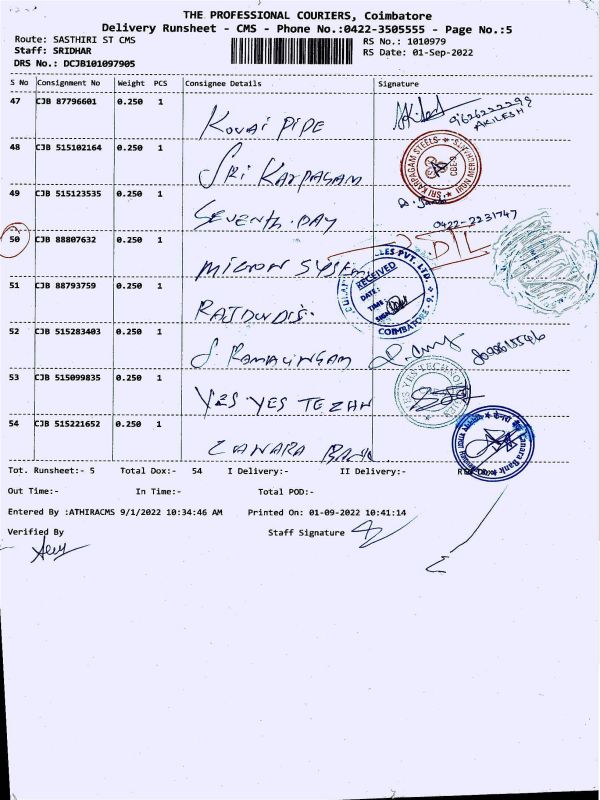 THE PROFESSIONAL COURIERS, Coimbatore
Delivery Runsheet - CMS - Phone No.:0422-3505555 - Page No.:5
Route: SASTHIRI ST CMS
RS No.: 1010979
Staff: SRIDHAR
RS Date: 01-Sep-2022
DRS No.: DCJB101097905
S No Consignment No Weight PCS Consignee Details Signature
47 CJB 87796601 0.250 1
KOVAI PIPE
AKILESH
48 CJB 515102164 0.250 1
SRI KARPAGAM
SRI KARPAGAM STEELS
CBE-9
49 CJB 515123535 0.250 1
SEVENTH DAY
0422-2231747
50 CJB 88807632 0.250 1
MICRON SYSTEM
DIL
51 CJB 88793759 0.250 1
LES PVT. LTD.
RECEIVED
DATE:
TIME:
SIGN
COIMBATORE
52 CJB 515283403 0.250 1
S. RAMALINGAM
53 CJB 515099835 0.250 1
YES YES TEZAH
54 CJB 515221652 0.250 1
CANARA BANK
केनरा बैंक Canara Bank
Tot. Runsheet:- 5 Total Dox:- 54 I Delivery:- II Delivery:-
Out Time:- In Time:- Total POD:-
Entered By :ATHIRACMS 9/1/2022 10:34:46 AM Printed On: 01-09-2022 10:41:14
Verified By Staff Signature